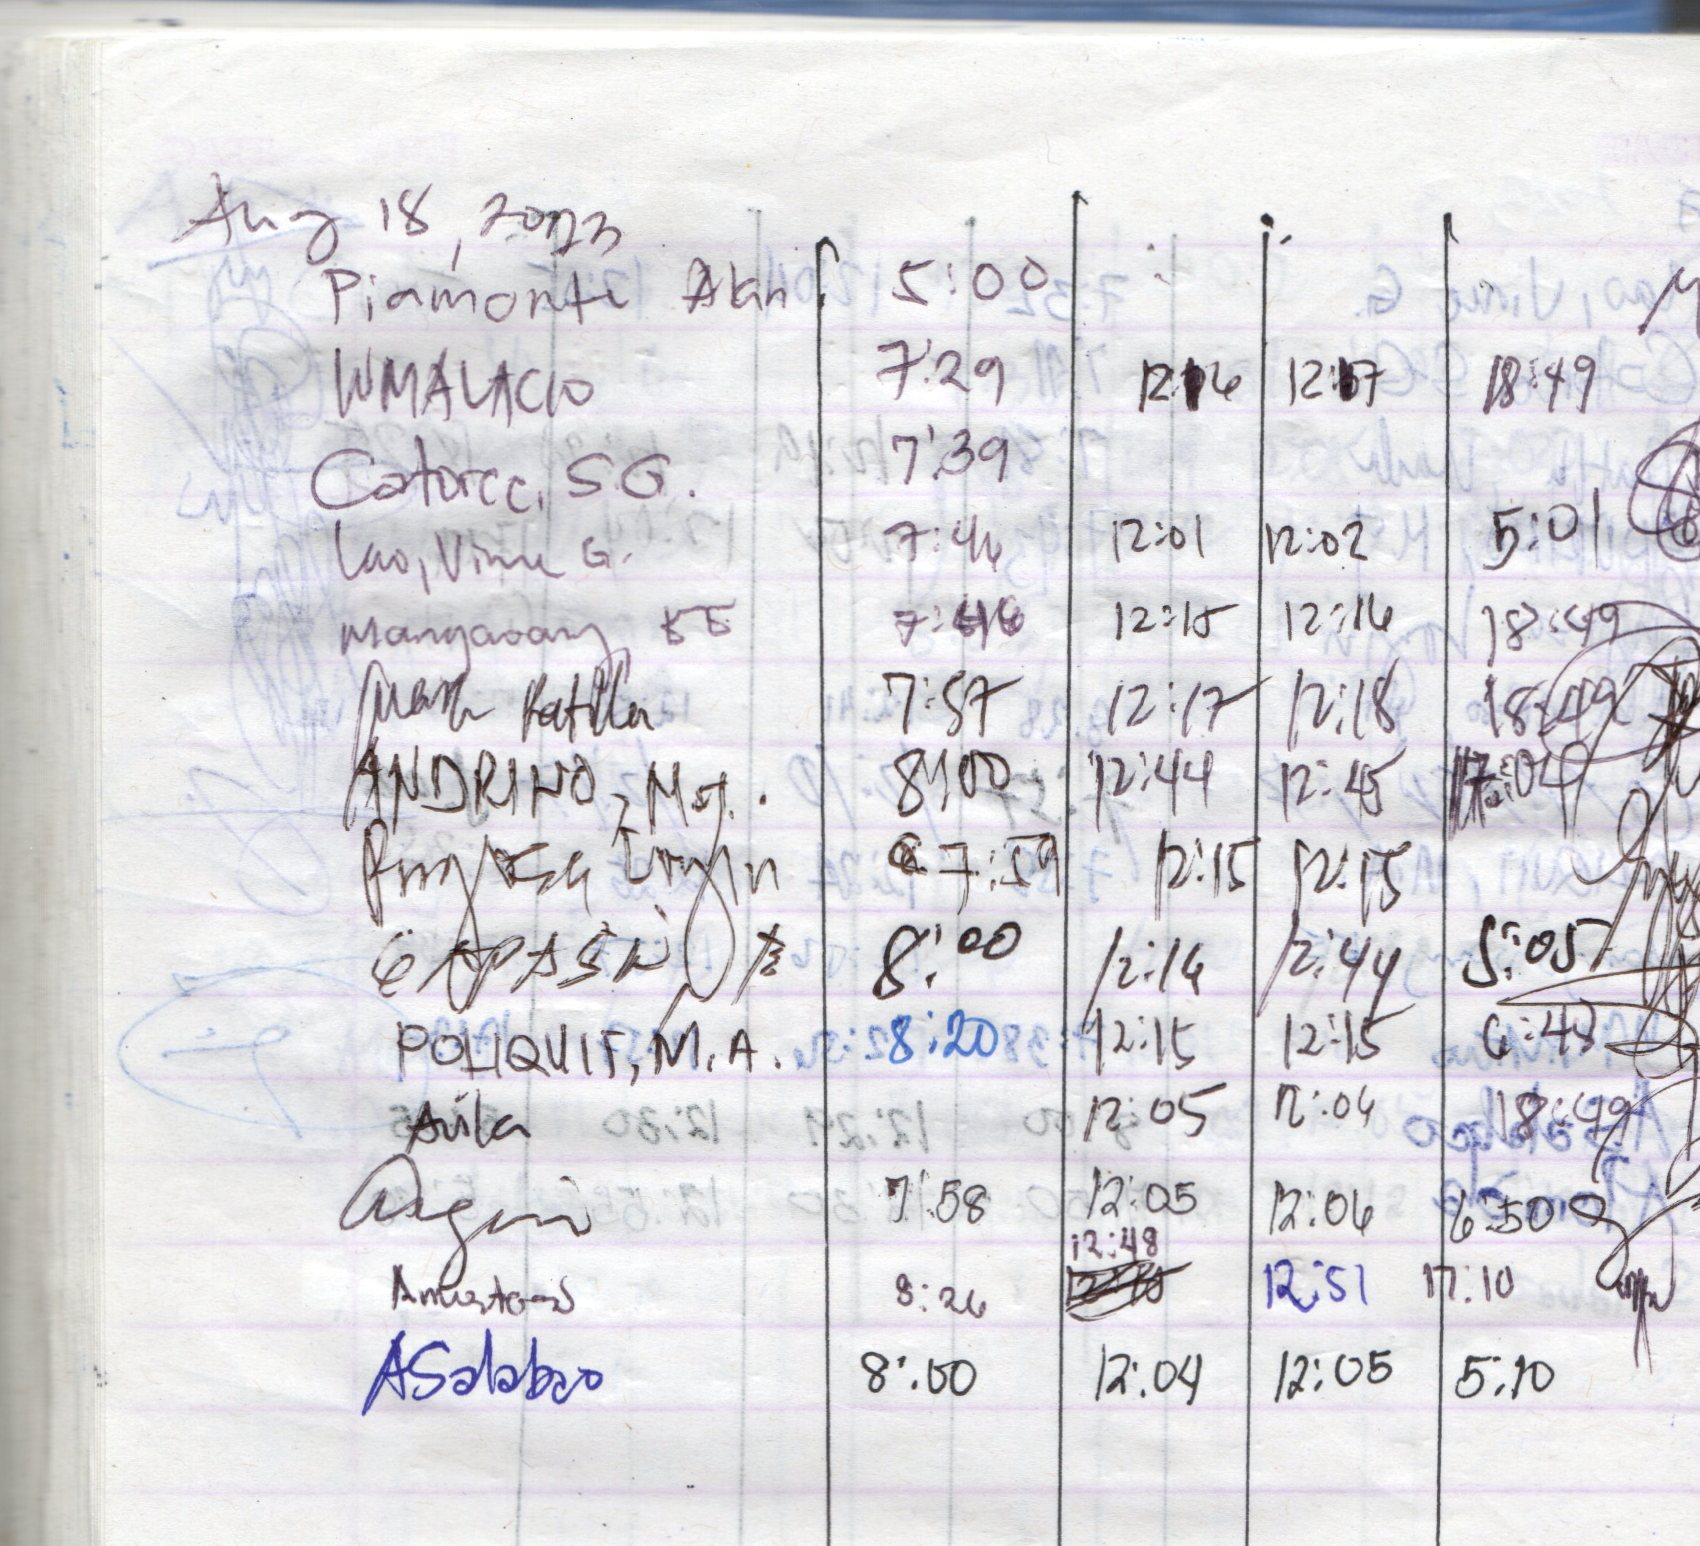 Aug 18, 2023
Piamonte Alan 5:00
WMALACIO 7:29 12:16 12:17 18:49
Catorce, S.G. 7:39
Lao, Vine G. 7:44 12:01 12:02 5:01
7:46 12:15 12:16 18:49
Mark 7:57 12:17 12:18 18:49
ANDRINO, 8:00 12:44 12:45 17:04
7:59 12:15 12:15
8:00 12:14 12:44 5:05
POLIQUIT, M.A. 8:20 12:15 12:15 6:43
Avila 12:05 12:06 18:49
7:58 12:05 12:06 6:50
12:48
8:26 12:51 17:10
ASalabao 8:00 12:04 12:05 5:10